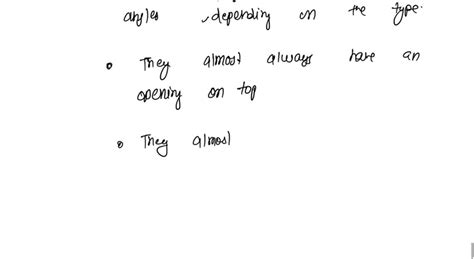 angles , depending on the type.
• They almost always have an
opening on top
• They almost